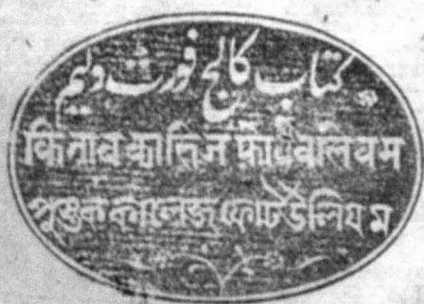 کتاب کالج فورث ولیم
किताब कालिज फोर्ट वलियम
পুস্তক কালেজ্ ফোর্ট উলিযম